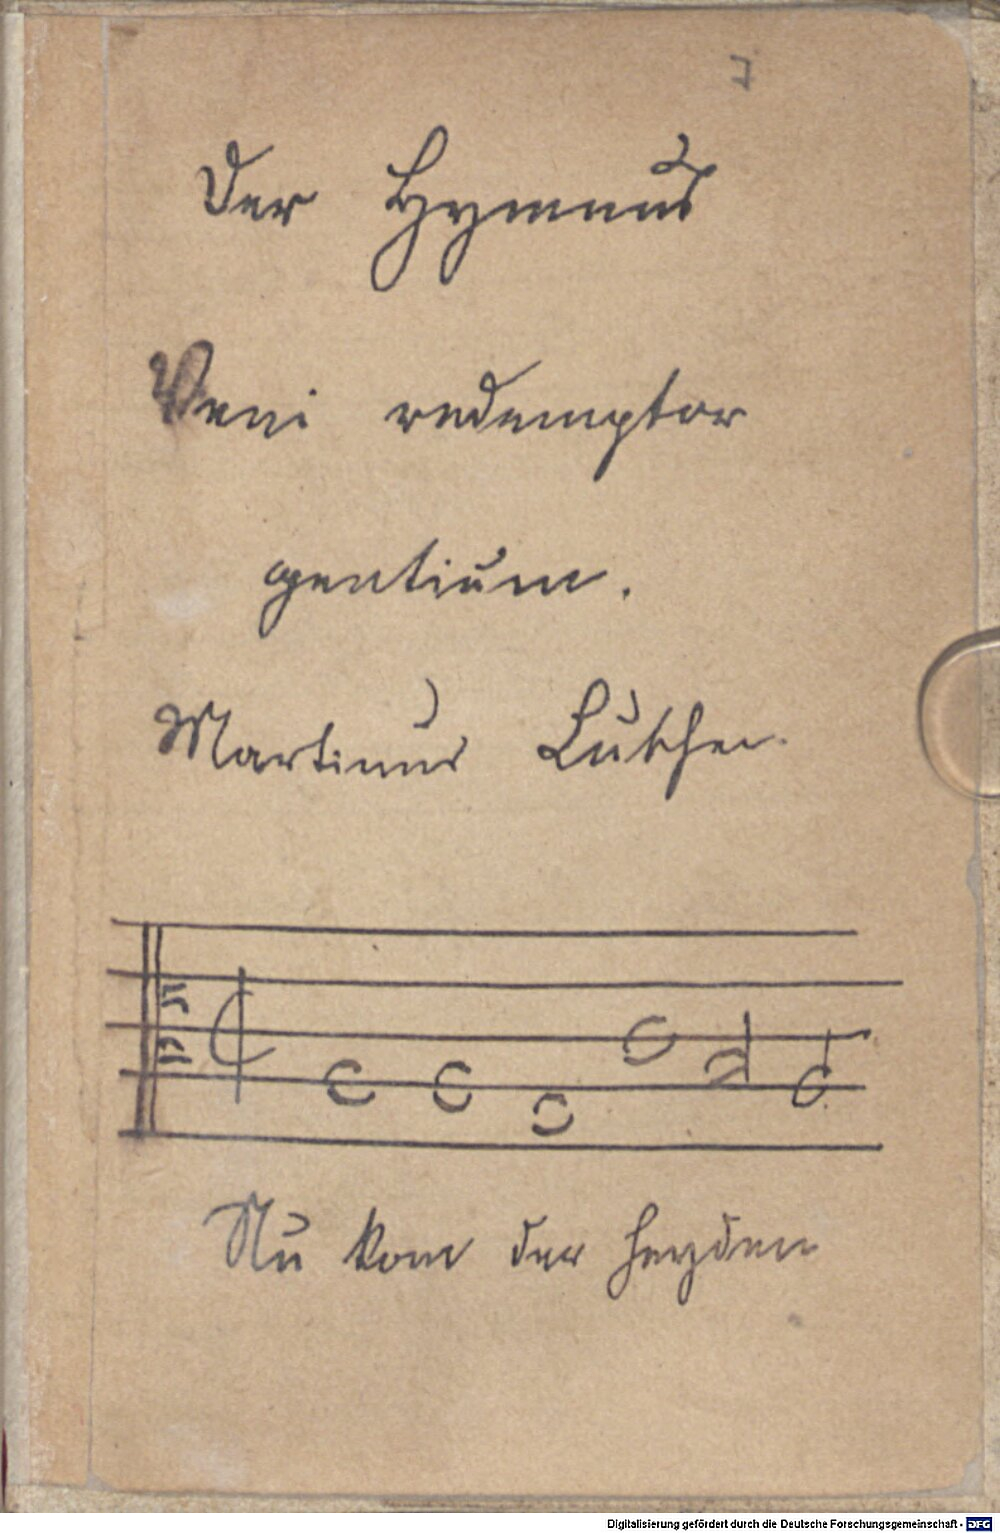 Der Hymnus
Veni redemptor
gentium.
Martinus Luther.
Nu kom der heyden
Digitalisierung gefördert durch die Deutsche Forschungsgemeinschaft - DFG